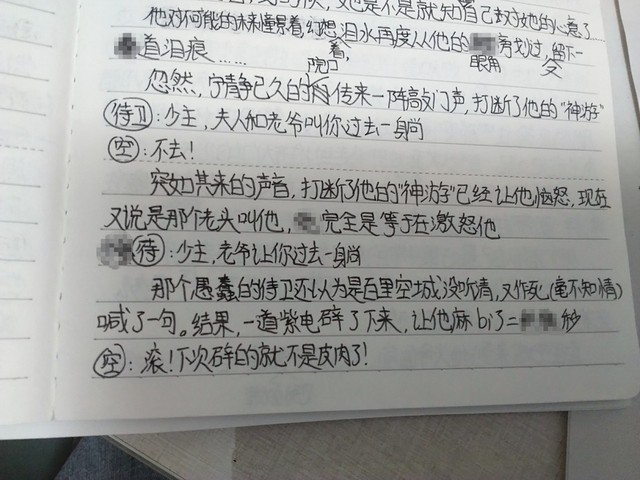 他对不可能的未来憧憬着幻想着,泪水再度从他的眼角旁划过,留下一
道泪痕……
忽然,宁静已久的院口传来一阵敲门声,打断了他的“神游”
侍卫:少主,夫人和老爷叫你过去一趟
空:不去!
突如其来的声音,打断了他的“神游”已经让他恼怒,现在
又说是那个老头叫他,完全是等于在激怒他
侍:少主,老爷让你过去一趟
那个愚蠢的侍卫还以为是百里空城没听清,又作死(毫不知情)
喊了一句。结果,一道紫电碎了下来,让他麻bi了=秒
空:滚!下次碎的就不是皮肉了!